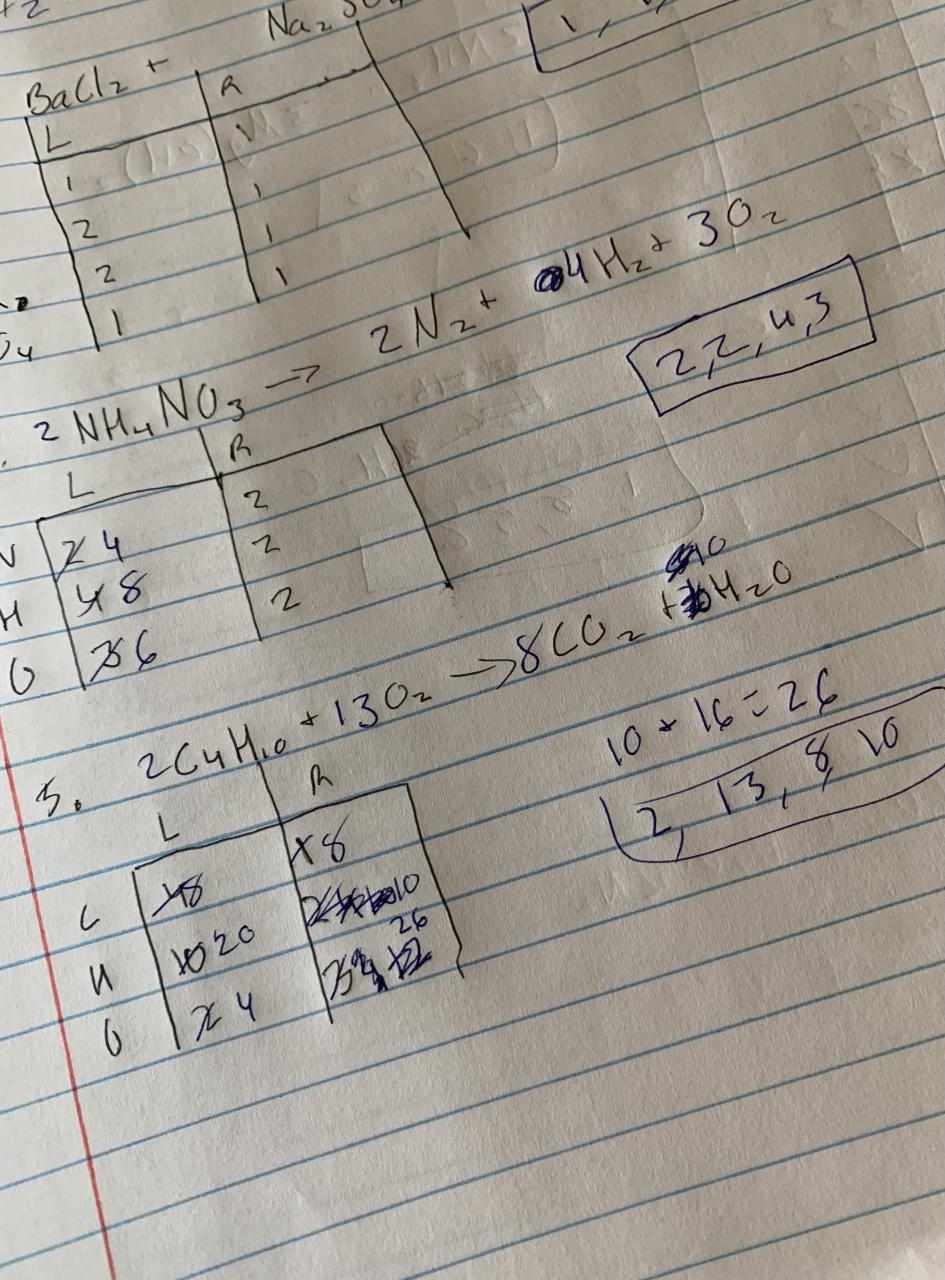 +2
BaCl₂ + Na₂SO₄
1,
L R
1
2 1
2 1
1 1
O₄
2 NH₄NO₃ → 2N₂ + 4H₂ + 3O₂
2, 2, 4, 3
L R
N 2 4 2
H 4 8 2
O 3 6 2
5. 2C₄H₁₀ + 13O₂ → 8CO₂ + 10 H₂O
10 + 16 = 26
2, 13, 8, 10
L R
C 4 8 1 8
H 10 20 2 10
O 2 4 3 26